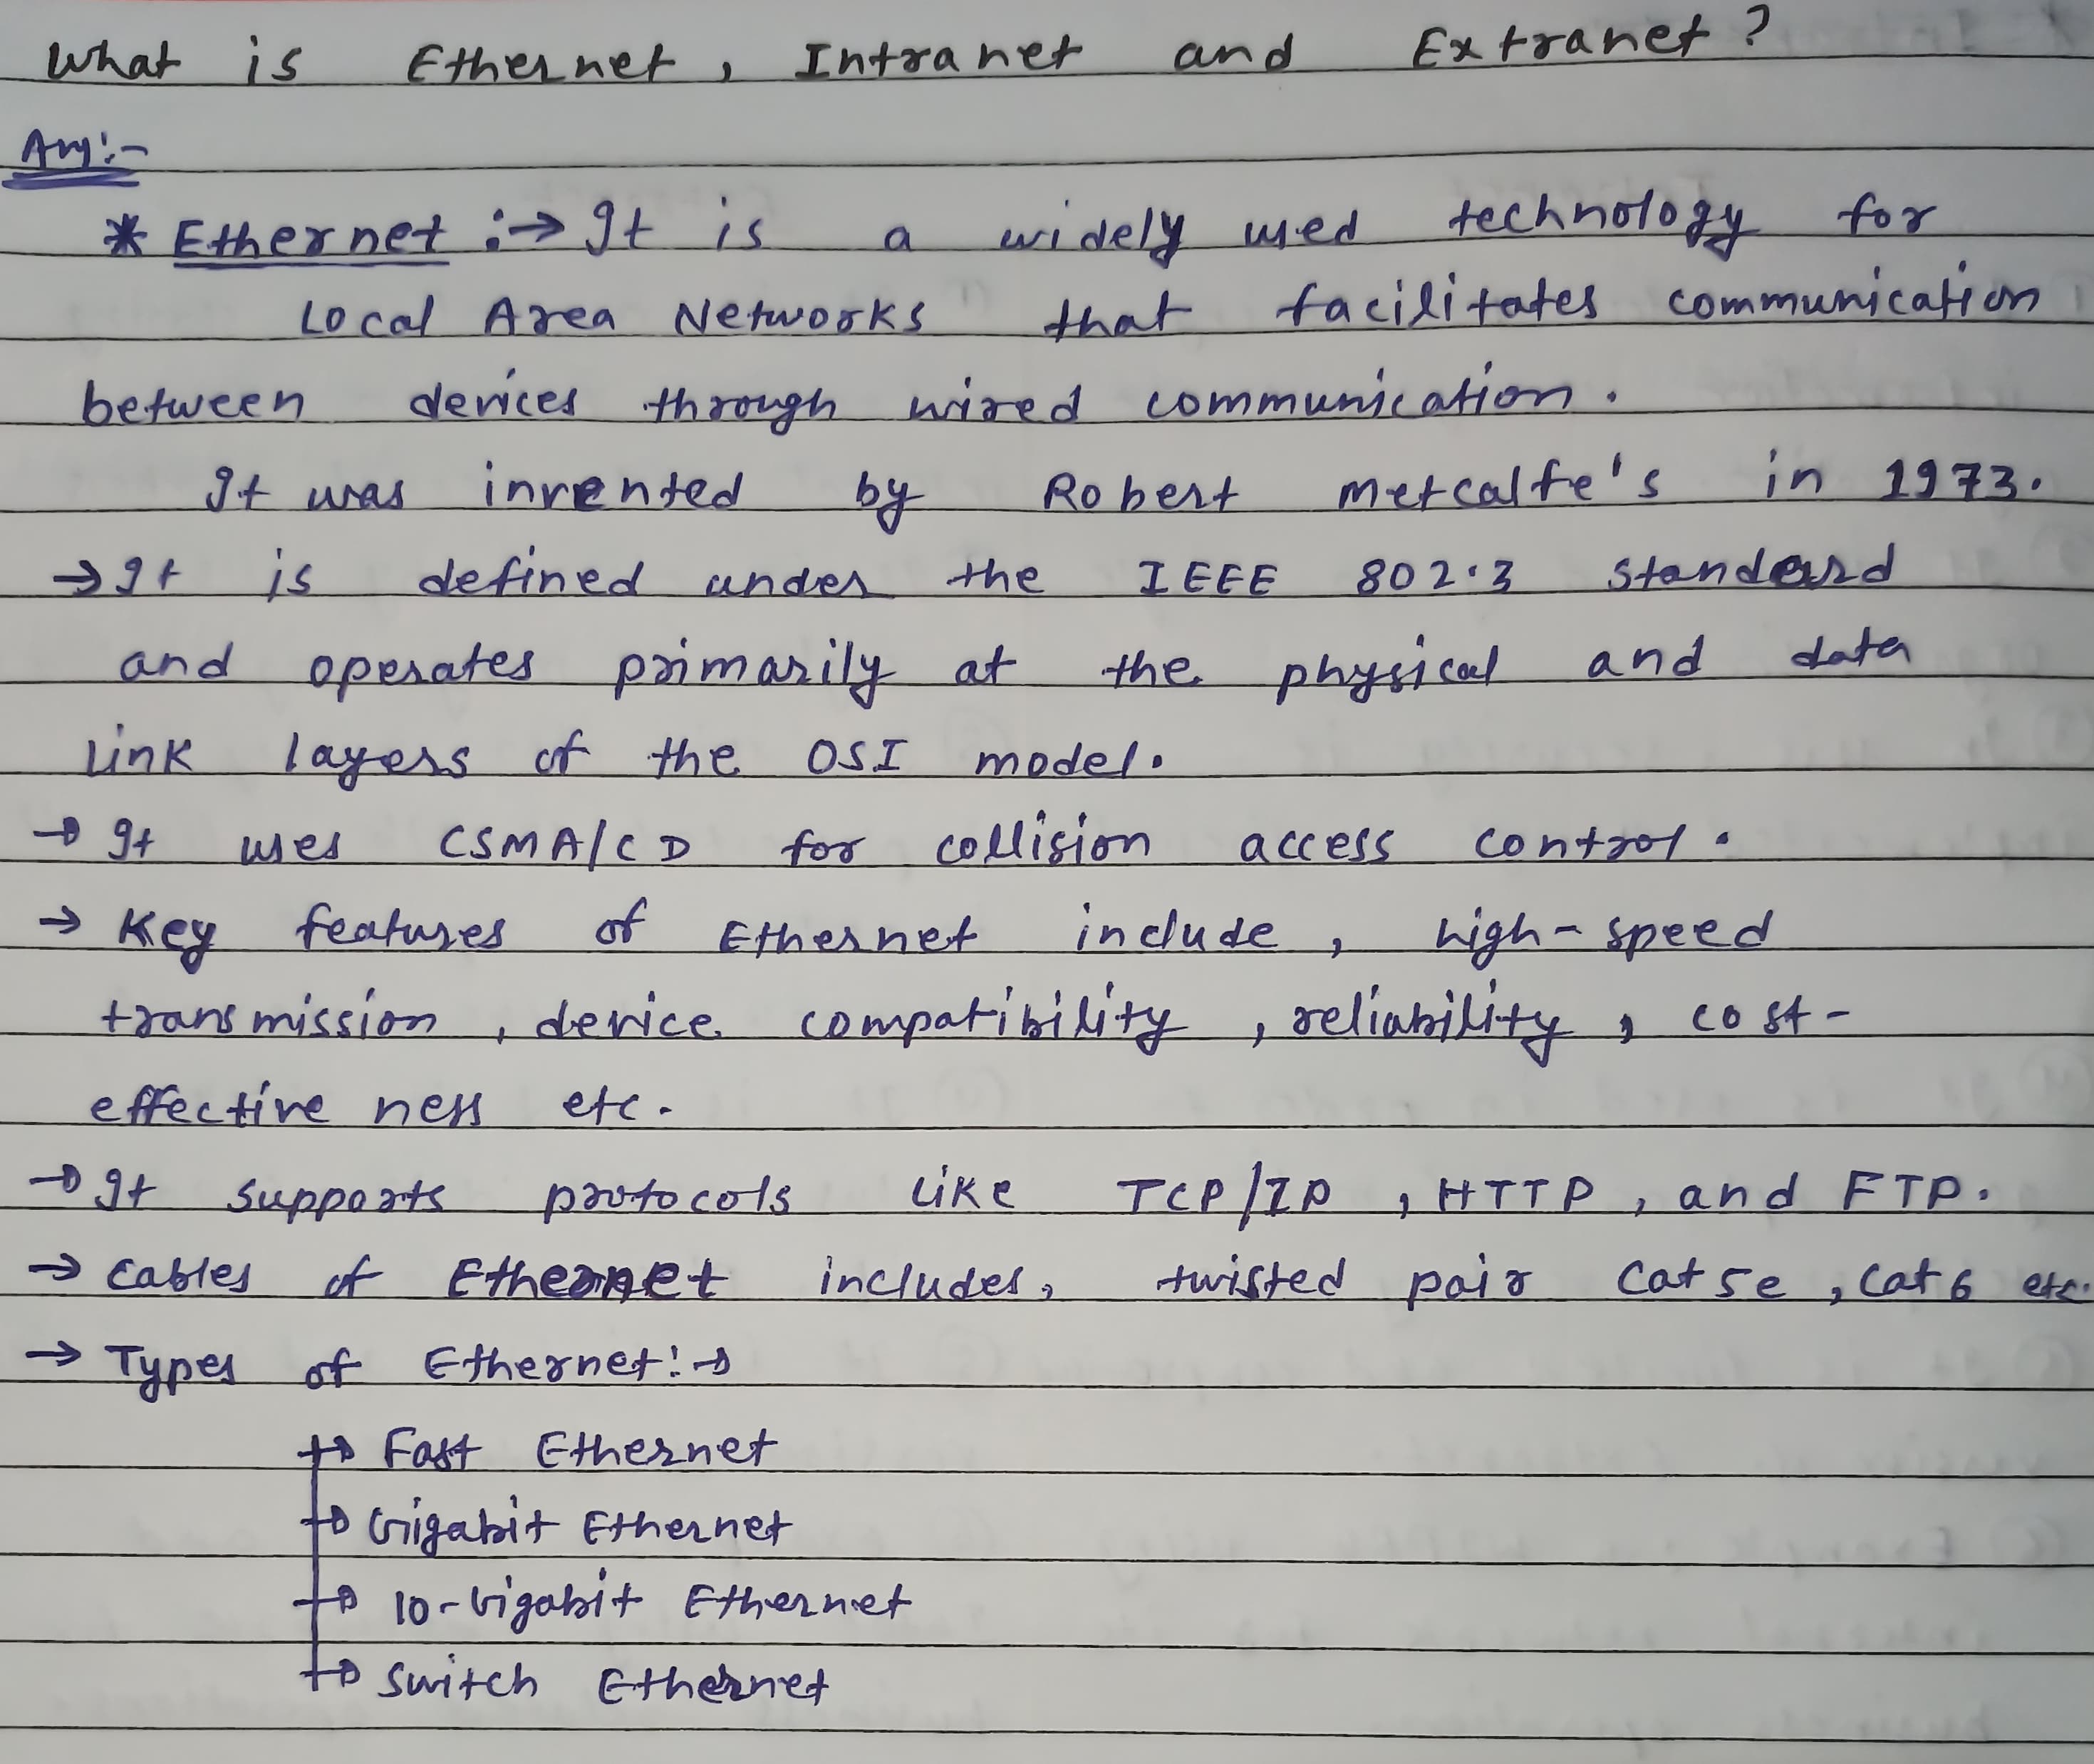 What is Ethernet, Intranet and Extranet?
Ans:-
* Ethernet :→ It is a widely used technology for
Local Area Networks that facilitates communication
between devices through wired communication.
It was invented by Robert Metcalfe's in 1973.
→ It is defined under the IEEE 802.3 standard
and operates primarily at the physical and data
link layers of the OSI model.
→ It uses CSMA/CD for collision access control.
→ Key features of Ethernet include, high-speed
transmission, device compatibility, reliability, cost-
effective ness etc.
→ It supports protocols like TCP/IP, HTTP, and FTP.
→ Cables of Ethernet includes, twisted pair Cat 5e, Cat 6 etc.
→ Types of Ethernet:→
→ Fast Ethernet
→ Gigabit Ethernet
→ 10-Gigabit Ethernet
→ Switch Ethernet